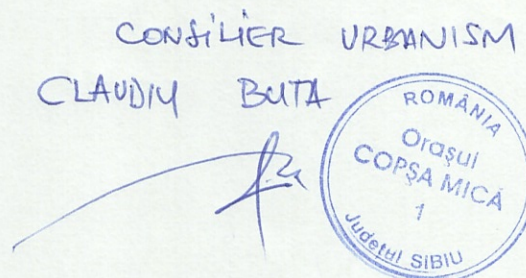 CONSILIER URBANISM
CLAUDIU BUTA
ROMÂNIA
Orașul
COPȘA MICĂ
1
Județul SIBIU